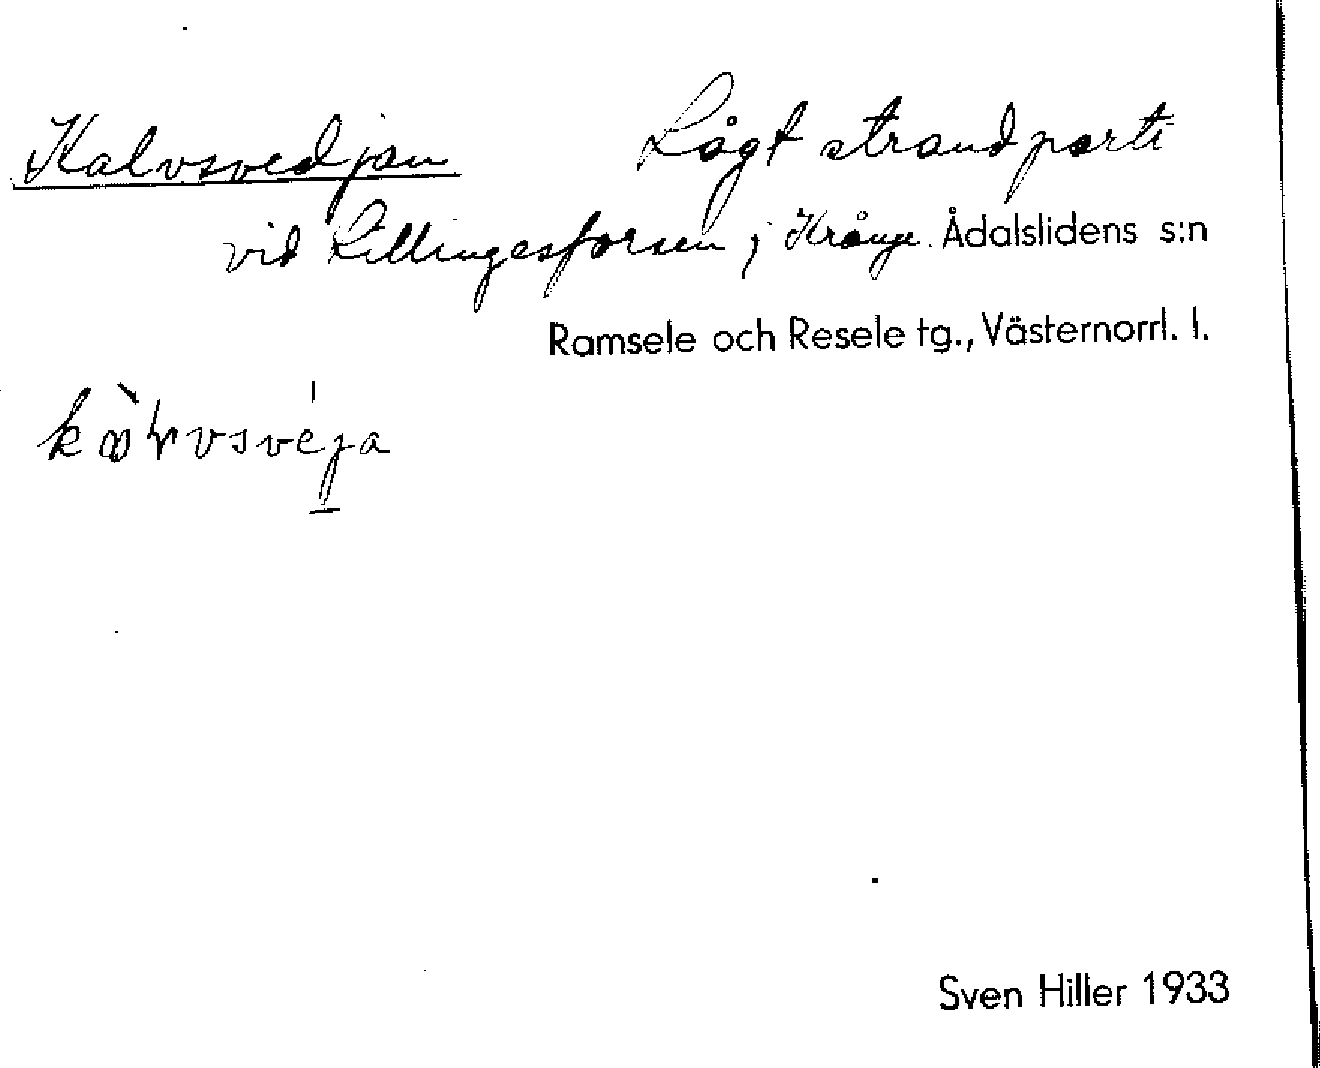 Kalvsvedjan Lågt strandparti
vid Lillingesforsen, Krånge. Ådalslidens s:n
Ramsele och Resele tg., Västernorrl. l.
Sven Hiller 1933